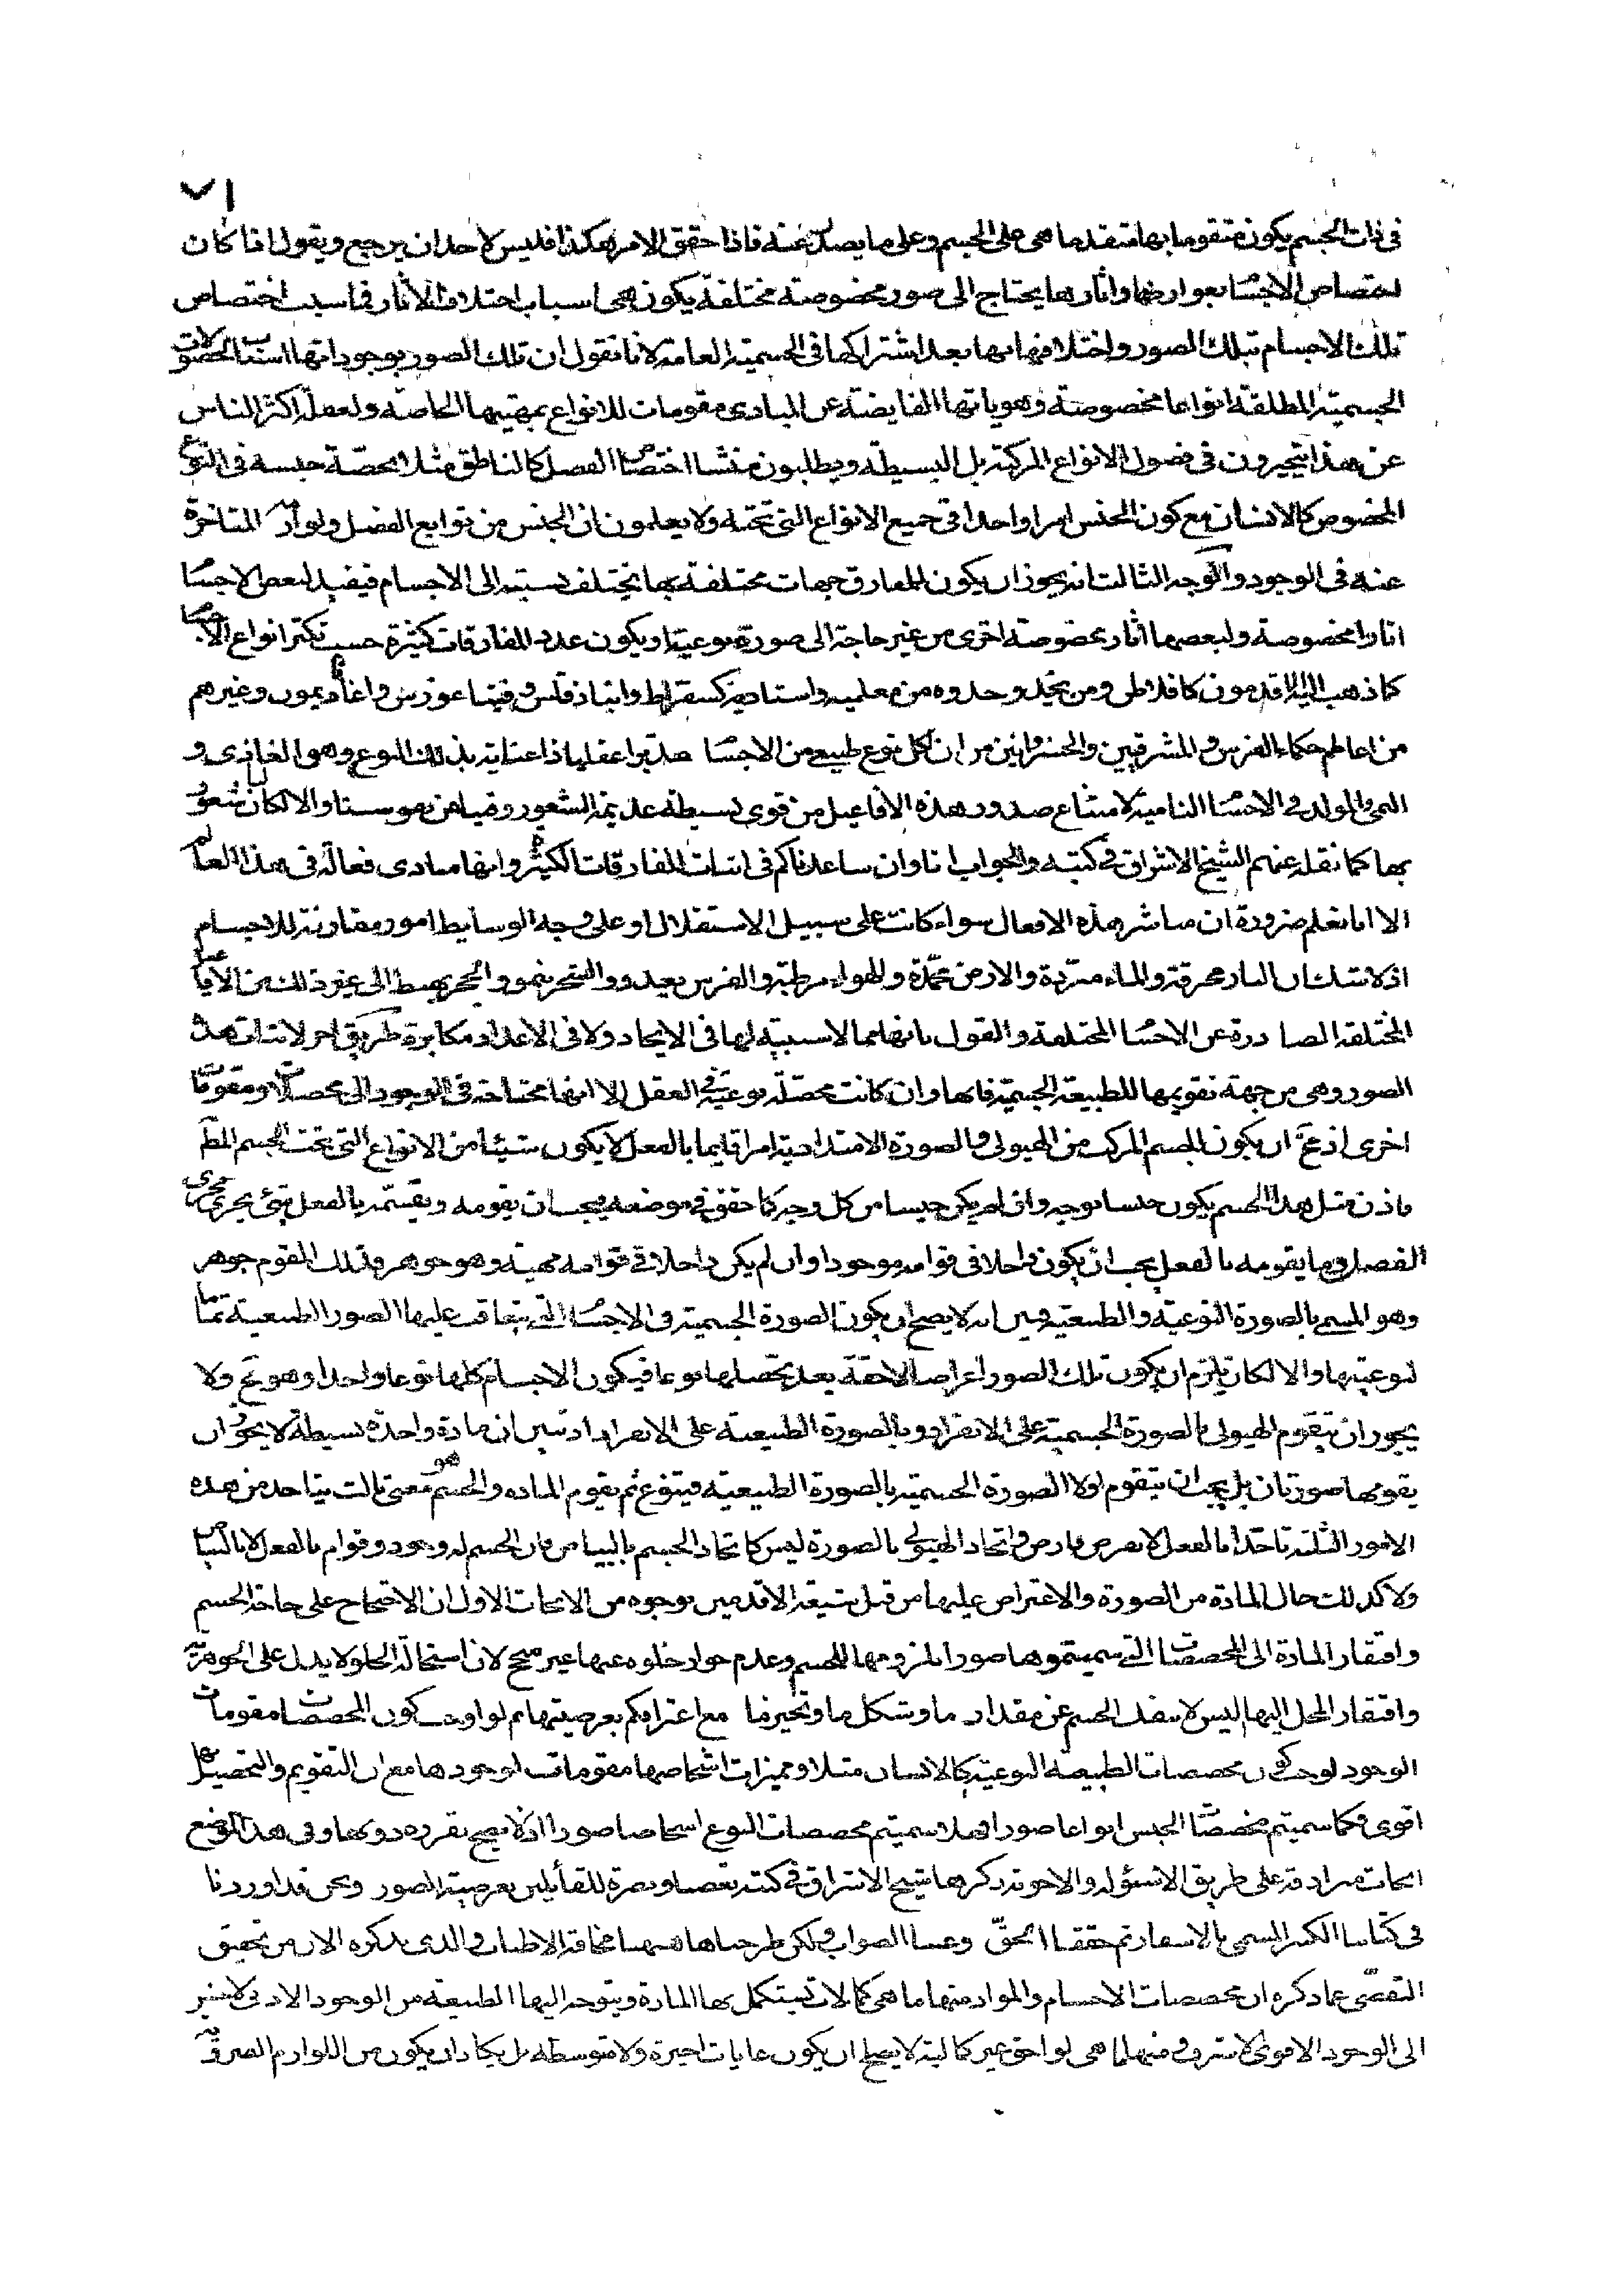 ٧١
فی ذات الجسم یکون متقوما بها متقدما هی علی الجسم و علی ما یصدر عنه فاذا حقق الامر هکذا فلیس لاحد ان یرجع و یقول اذا کان
اختصاص الاجسا بعوارضها و آثارها یحتاج الی صور مخصوصة مختلفة یکون هی اسباب اختلاف الآثار فما سبب اختصاص
تلک الاجسام بتلک الصور و اختلافها بها بعد اشتراکها فی الجسمیة العامة لانا نقول ان تلک الصور بوجوداتها اسباب لحصولات
الجسمیة المطلقة انواعا مخصوصة و هویاتها الفایضة عن المبادی مقومات للانواع بمهیتها الخاصة و لغفلة اکثر الناس
عن هذا یتحیرون فی فصول الانواع المرکبة بل البسیطة و یطلبون منشا اختصاص الفصل کالناطق مثلا بحصّة جنسه فی النوع
المخصوص کالانسان مع کون الجنس امرا واحدا فی جمیع الانواع التی تحته و لا یعلمون ان الجنس من توابع الفصل و لوازمه المتاخرة
عنه فی الوجود و الوجه الثالث انه یجوز ان یکون للمفارق جهات مختلفة بها یختلف نسبته الی الاجسام فیفید لبعض الاجسا
آثارا مخصوصة و لبعضها آثار مخصوصة اخری من غیر حاجة الی صورة نوعیة او یکون عدد المفارقات کثیرة حسب تکثر انواع الاجسا
کما ذهب الیه الاقدمون کافلاطن و من یحذو حذوه من معلمیه و استادیه کسقراط و انباذقلس و فیثاغورس و اغاثاذیمون و غیرهم
من اعاظم حکماء الفرس و المشرقیین و الخسروانیین من ان لکل نوع طبیعی من الاجسا مدبرا عقلیا ذا عنایة بذلک النوع و هو الغاذی و
المنمی و المولد فی الاجسا النامیة لامتناع صدور هذه الافاعیل من قوی بسیطة عدیمة الشعور و فینا عن نفوسنا و الا لکان لنا شعور
بها کما نقله عنهم الشیخ الاشراق فی کتبه و الجواب انا و ان ساعدناکم فی اثبات المفارقات الکثیرة و انها مبادی فعالة فی هذا العالم
الا انا نعلم ضرورة ان مباشر هذه الافعال سواء کانت علی سبیل الاستقلال او علی وجه الوسایط امور مقارنة للاجسام
اذ لا شک ان النار محرقة و الماء مبردة و الارض مجمّدة و الهواء مرطبة و الفرس یعدو و الشجر ینمو و الحجر یهبط الی غیر ذلک من الافاعیل
المختلفة الصادرة عن الاجسا المختلفة و القول بانها مما لا سببیة لها فی الایجاد و لا فی الاعداد مکابرة طریق اخر لاثبات هذه
الصور و هی من جهة تقویمها للطبیعة الجسمیة فانها و ان کانت محصّلة نوعیة فی العقل الا انها محتاجة فی الوجود الی محصلات و مقومات
اخری اذ یمتنع ان یکون للجسم المرکب من الهیولی و الصورة الامتدادیة امرا قایما بالفعل لا یکون شیئا من الانواع التی تحت الجسم المط
فاذن مثل هذا الجسم یکون جنسا بوجه و ان لم یکن جنسا من کل وجه کما حقق فی موضعه فیجب ان یقومه و یقسّمه بالفعل شئ یجری مجری
الفصل و ما یقومه بالفعل یجب ان یکون داخلا فی قوامه موجودا و ان لم یکن داخلا فی قوامه مهیة و هو جوهر فذلک المقوم جوهر
و هو المسمی بالصورة النوعیة و الطبیعیة فتبین انه لا یصح ان یکون الصورة الجسمیة فی الاجسا التی یتعاقب علیها الصور الطبیعیة تماما
لنوعیتها و الا لکان یلزم ان یکون تلک الصور اعراضا لاحقة بعد تحصّلها نوعا فیکون الاجسام کلها نوعا واحدا و هو مح و لا
یجوز ان یتقوم الهیولی بالصورة الجسمیة علی الانفراد و بالصورة الطبیعیة علی الانفراد اذ تبین ان مادة واحدة بسیطة لا یجوز ان
یقومها صورتان بل یجب ان یتقوم اولا الصورة الجسمیة بالصورة الطبیعیة فیتنوع ثم یقوم المادة و الجسم هو معنی ثالث یتاحد من هذه
الامور الثلثة تاحدا بالفعل لا بفرض فارض و اتحاد الهیولی بالصورة لیس کاتحاد الجسم بالبیاض فان الجسم له وجود و قوام بالفعل لا بالبیاض
و لا کذلک حال المادة من الصورة و الاعتراض علیها من قبل شیعة الاقدمین بوجوه من الابحاث الاول ان الاحتجاج علی حاجة الجسم
و افتقار المادة الی المخصصات التی سمیتموها صورا بلزومها للجسم و عدم جواز خلوه عنها غیر صحیح لان استحالة الخلو لا یدل علی الجوهریة
و افتقار المحل الیها الیس لا ینفک الجسم عن مقدار ما و شکل ما و تحیز ما مع اعترافکم بعرضیتها ثم لو اوجب کون المخصصات مقومات
الوجود لوجب کون مخصصات الطبیعة النوعیة کالانسان مثلا و ممیزات اشخاصها مقومات لوجودها مع ان التقویم و التحصیل هنا
اقوی فکما سمیتم مخصصات الجنس انواعا صورا فهلا سمیتم مخصصات النوع اشخاصا صورا اذ لا یصح تقرره دونها و فی هذا الموضع
ابحاث مرادفة علی طریق الاسئولة و الاجوبة ذکرها شیخ الاشراق فی کتبه نقضا و نصرة للقایلین بعرضیة الصور و نحن قد اوردنا
فی کتابنا الکبیر المسمی بالاسفار ثم حققنا الحقّ و عینا الصواب و لکن طرحناها ههنا مخافة الاطناب و الذی نذکره الان من تحقیق
التفصّی عما ذکره ان مخصصات الاجسام و المواد منها ما هی کمالات تستکمل بها المادة و یتوجه الیها الطبیعة من الوجود الادنی الاخس
الی الوجود الاقوی الاشرف و منها ما هی لواحق غیر کمالیة لا یصلح ان یکون غایات اخیرة و لا متوسطة بل یکاد ان یکون من اللوازم الضروریة